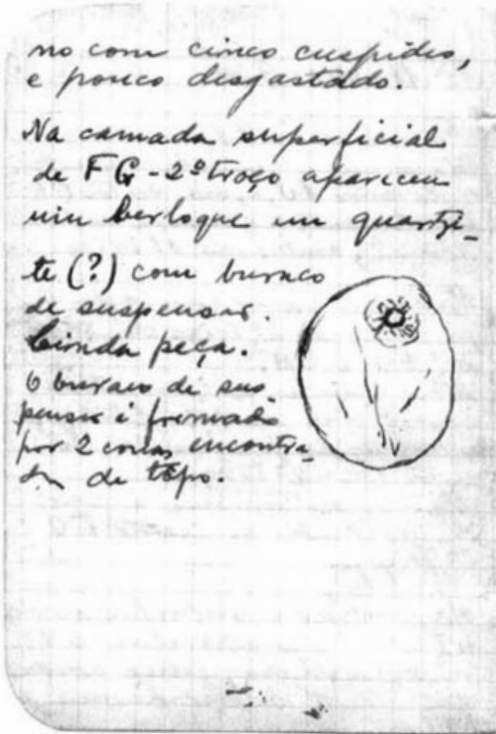 no com cinco cuspides,
e pouco desgastado.
Na camada superficial
de FG-2º troço apareceu
um berloque em quartzi-
te (?) com buraco
de suspensão.
Linda peça.
O buraco de sus
pensão é formado
por 2 cones encontra-
dos de topo.